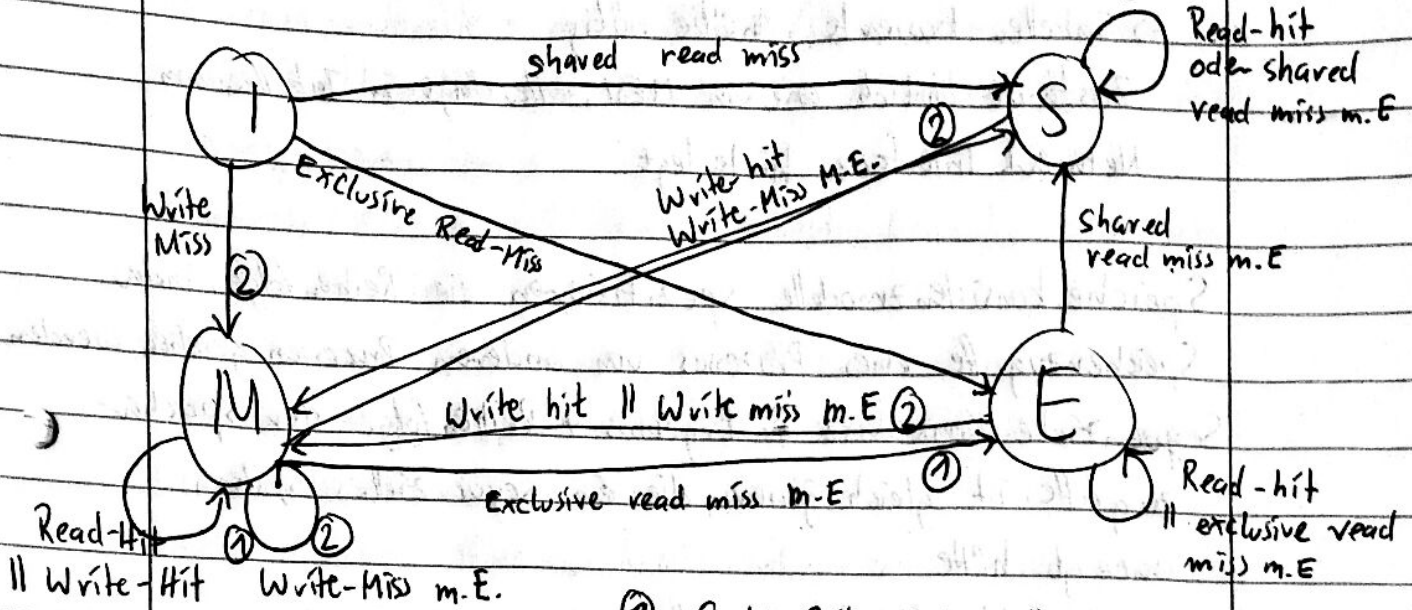 shared read miss
Read-hit
oder shared
read miss m.E
I
S
②
Write-hit
Write-Miss M.E.
Exclusive Read-Miss
Write
Miss
②
shared
read miss m.E
M
E
Write hit || Write miss m.E ②
①
Exclusive read miss m.E
Read-hit
|| exclusive read
miss m.E
Read-Hit
|| Write-Hit
① ②
Write-Miss m.E.
②